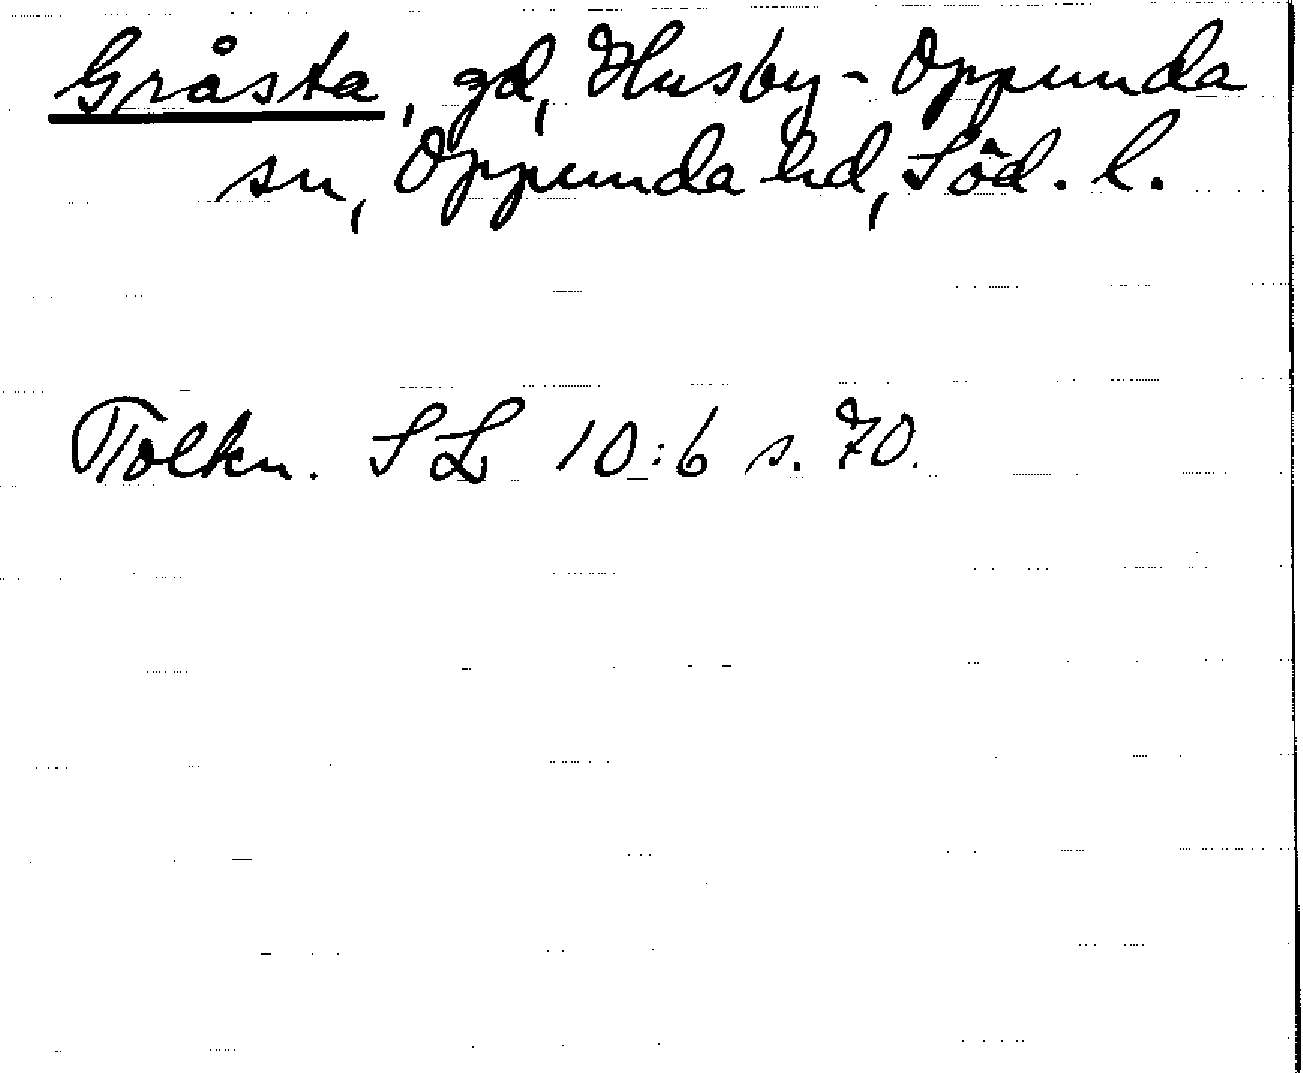 Gråsta, gd, Husby-Oppunda
sn, Oppunda hd, Söd. l.
Tolkn. SL 10:6 s. 70.